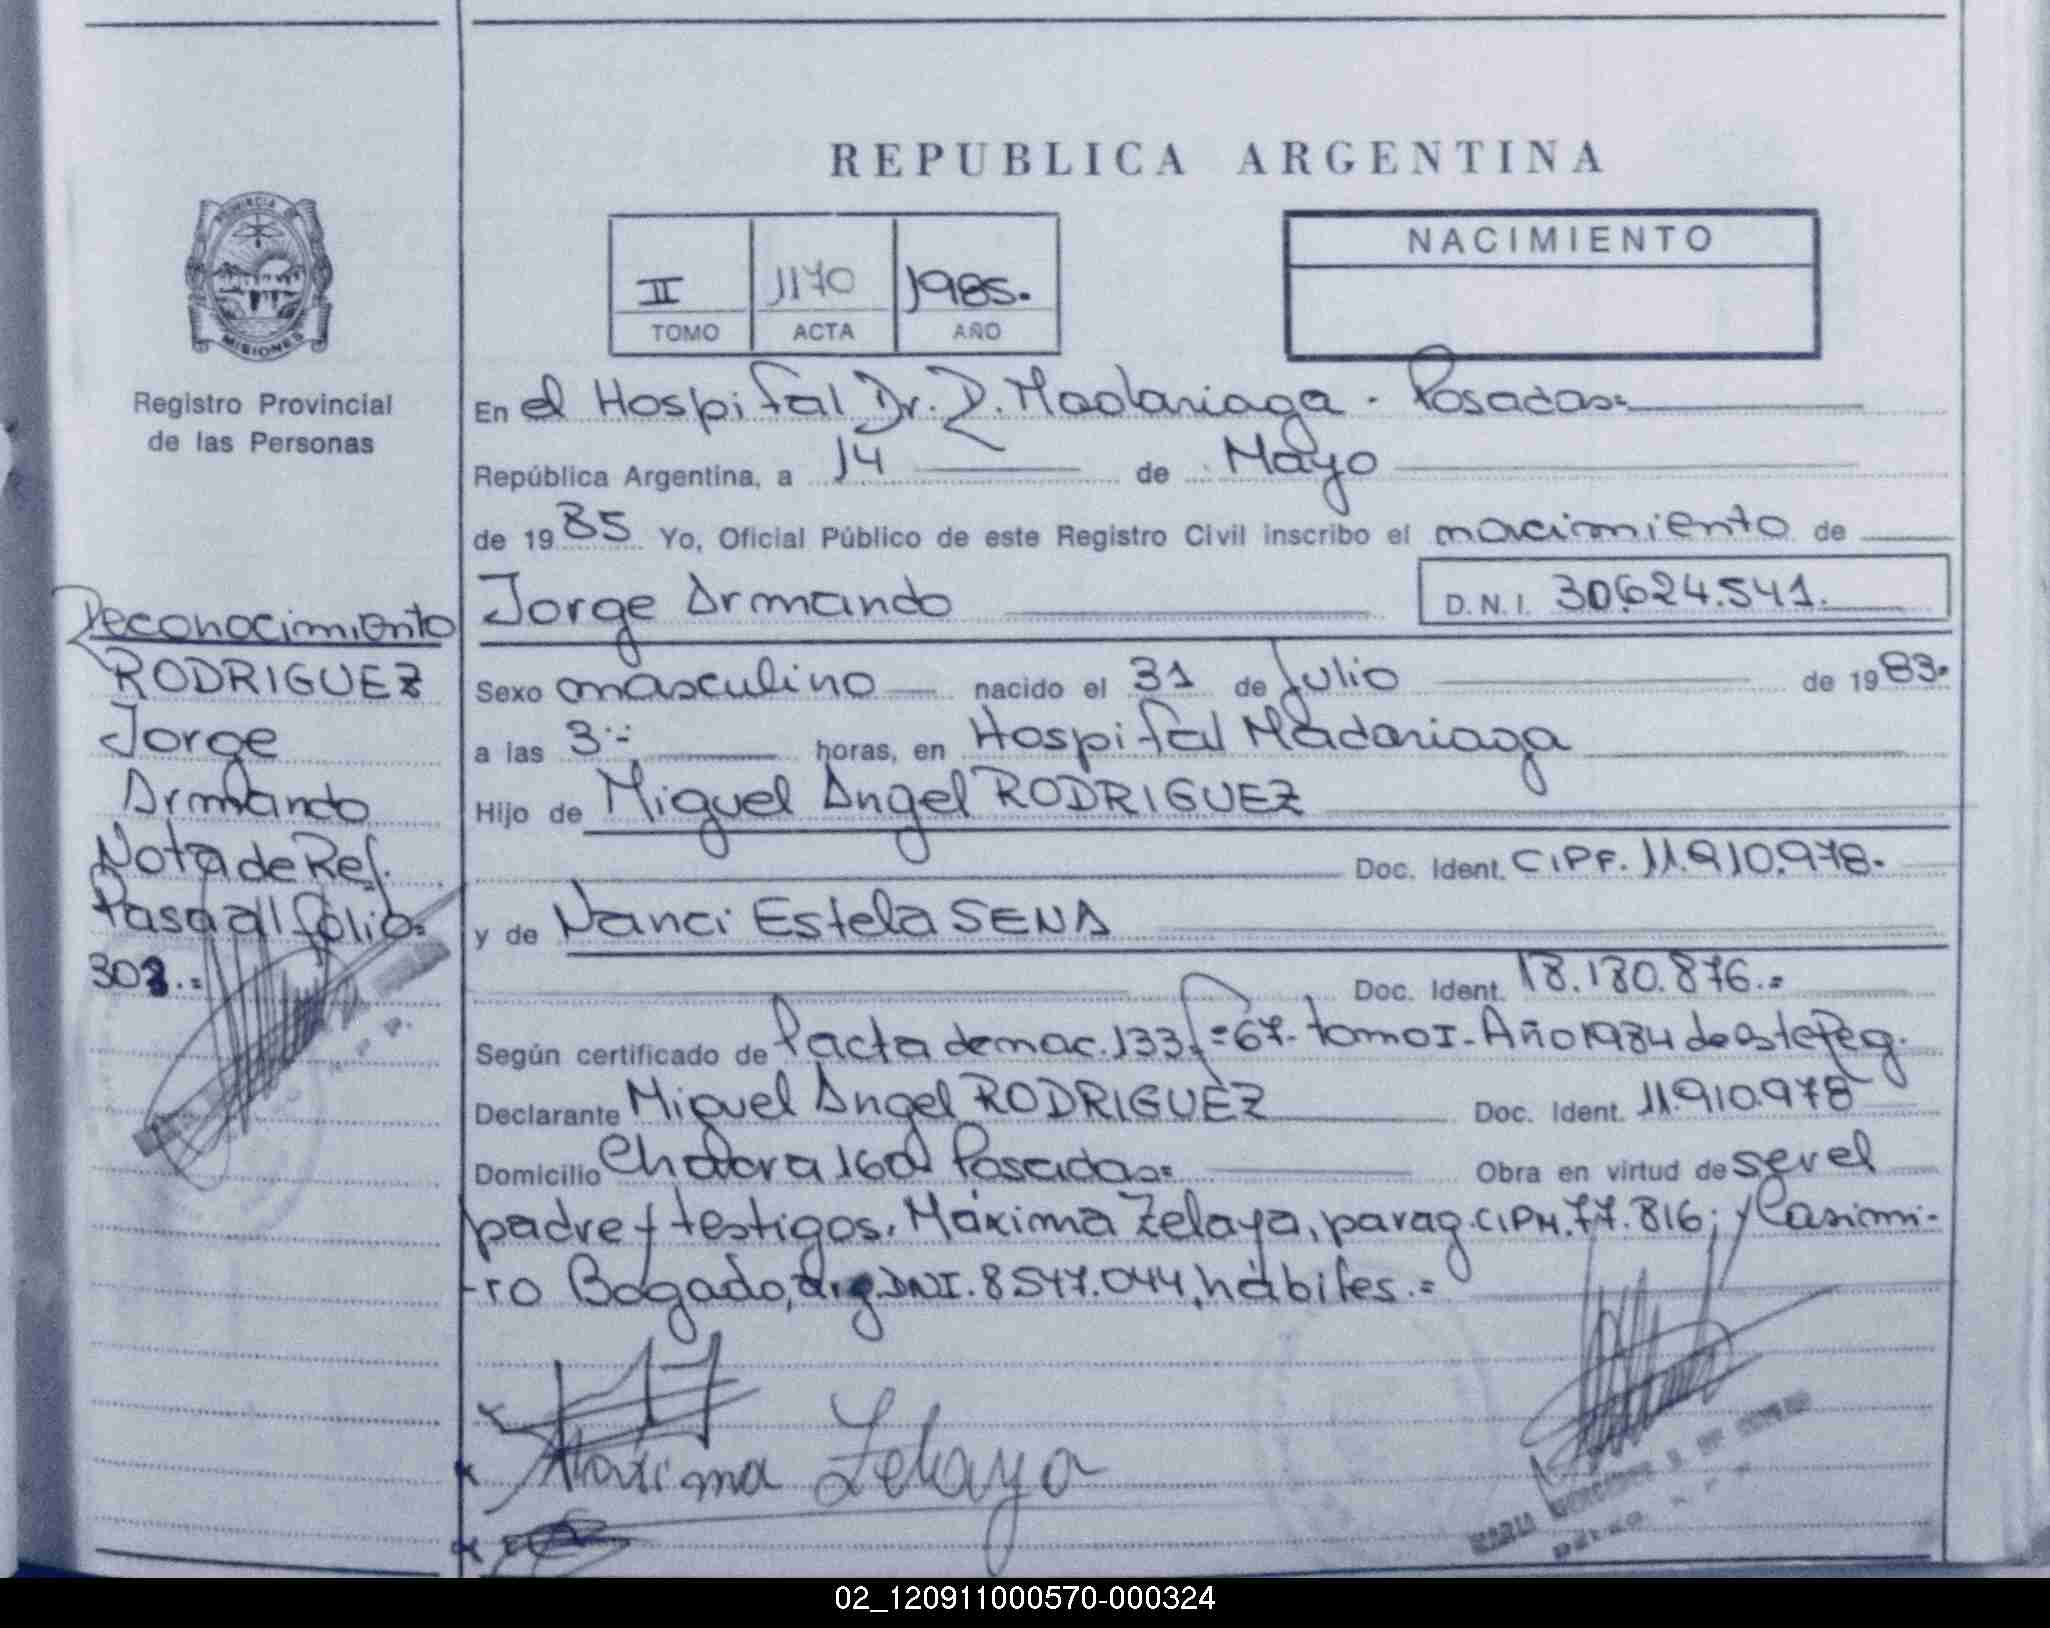 REPUBLICA ARGENTINA
PROVINCIA DE
MISIONES
Registro Provincial
de las Personas
II 1170 1985.
TOMO ACTA AÑO
NACIMIENTO
En el Hospital Dr. R. Madariaga - Posadas=
República Argentina, a 14 de Mayo
de 1985 Yo, Oficial Público de este Registro Civil inscribo el nacimiento de
Jorge Armando D.N.I. 30.624.541.
Sexo masculino nacido el 31 de Julio de 1983.
a las 3:- horas, en Hospital Madariaga
Hijo de Miguel Angel RODRIGUEZ
Doc. Ident. CIPF. 11.910.978.
y de Nanci Estela SENA
Doc. Ident. 18.180.876.=
Según certificado de acta de nac. 133 f=67- tomo I- Año 1984 de este Reg.
Declarante Miguel Angel RODRIGUEZ Doc. Ident. 11.910.978
Domicilio Chacra 160 Posadas= Obra en virtud de ser el
padre y testigos, Máxima Zelaya, parag. CIPM. 77.816; y Casimi-
-ro Bogado, arg. DNI. 8.547.044, hábiles.=
Maxima Zelaya
MARIA
Reconocimiento
RODRIGUEZ
Jorge
Armando
Nota de Ref.
Pasa al folio=
303.=
02_120911000570-000324